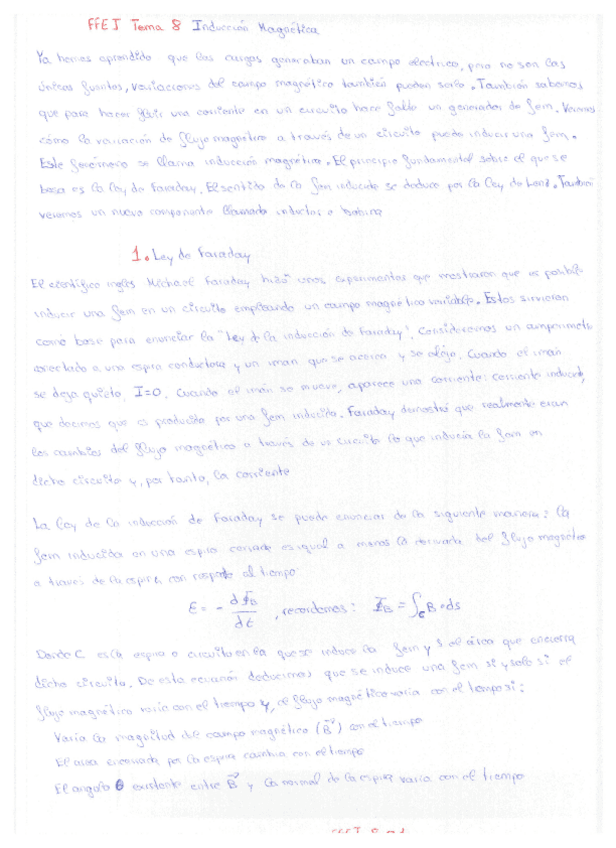 FFEI Tema 8 Inducción Magnética
Ya hemos aprendido que las cargas generaban un campo electrico, pero no son las
únicas fuentes, variaciones del campo magnético también pueden serlo. También sabemos
que para hacer fluir una corriente en un circuito hace falta un generador de fem. Veremos
cómo la variación de flujo magnetico a través de un circuito puede inducir una fem.
Este fenómeno se llama inducción magnética. El principio fundamental sobre el que se
basa es la Ley de Faraday. El sentido de la fem inducida se deduce por la Ley de Lenz. También
veremos un nuevo componente llamado inductor o bobina
1. Ley de Faraday
El científico inglés Michael Faraday hizo unos experimentos que mostraron que es posible
inducir una fem en un circuito empleando un campo magnético variable. Estos sirvieron
como base para enunciar la "Ley de la inducción de Faraday". Consideremos un amperímetro
conectado a una espira conductora y un iman que se acerca y se aleja. Cuando el imán
se deja quieto, I=0. Cuando el imán se mueve, aparece una corriente: corriente inducida,
que decimos que es producida por una fem inducida. Faraday demostró que realmente eran
los cambios del flujo magnetico a través de un circuito lo que inducía la fem en
dicho circuito y, por tanto, la corriente
La Ley de la inducción de Faraday se puede enunciar de la siguiente manera: La
fem inducida en una espira cerrada es igual a menos la derivada del flujo magnético
a traves de la espira con respecto al tiempo
ε = - dΦ_B/dt , recordemos: Φ_B = ∫_C B • ds
Donde C es la espira o circuito en la que se induce la fem y S el área que encierra
dicho circuito. De esta ecuación deducimos que se induce una fem si y solo si el
flujo magnético varía con el tiempo y, el flujo magnético varía con el tiempo si:
Varía la magnitud del campo magnético (B⃗) con el tiempo
El area encerrada por la espira cambia con el tiempo
El angulo θ existente entre B⃗ y la normal de la espira varía con el tiempo